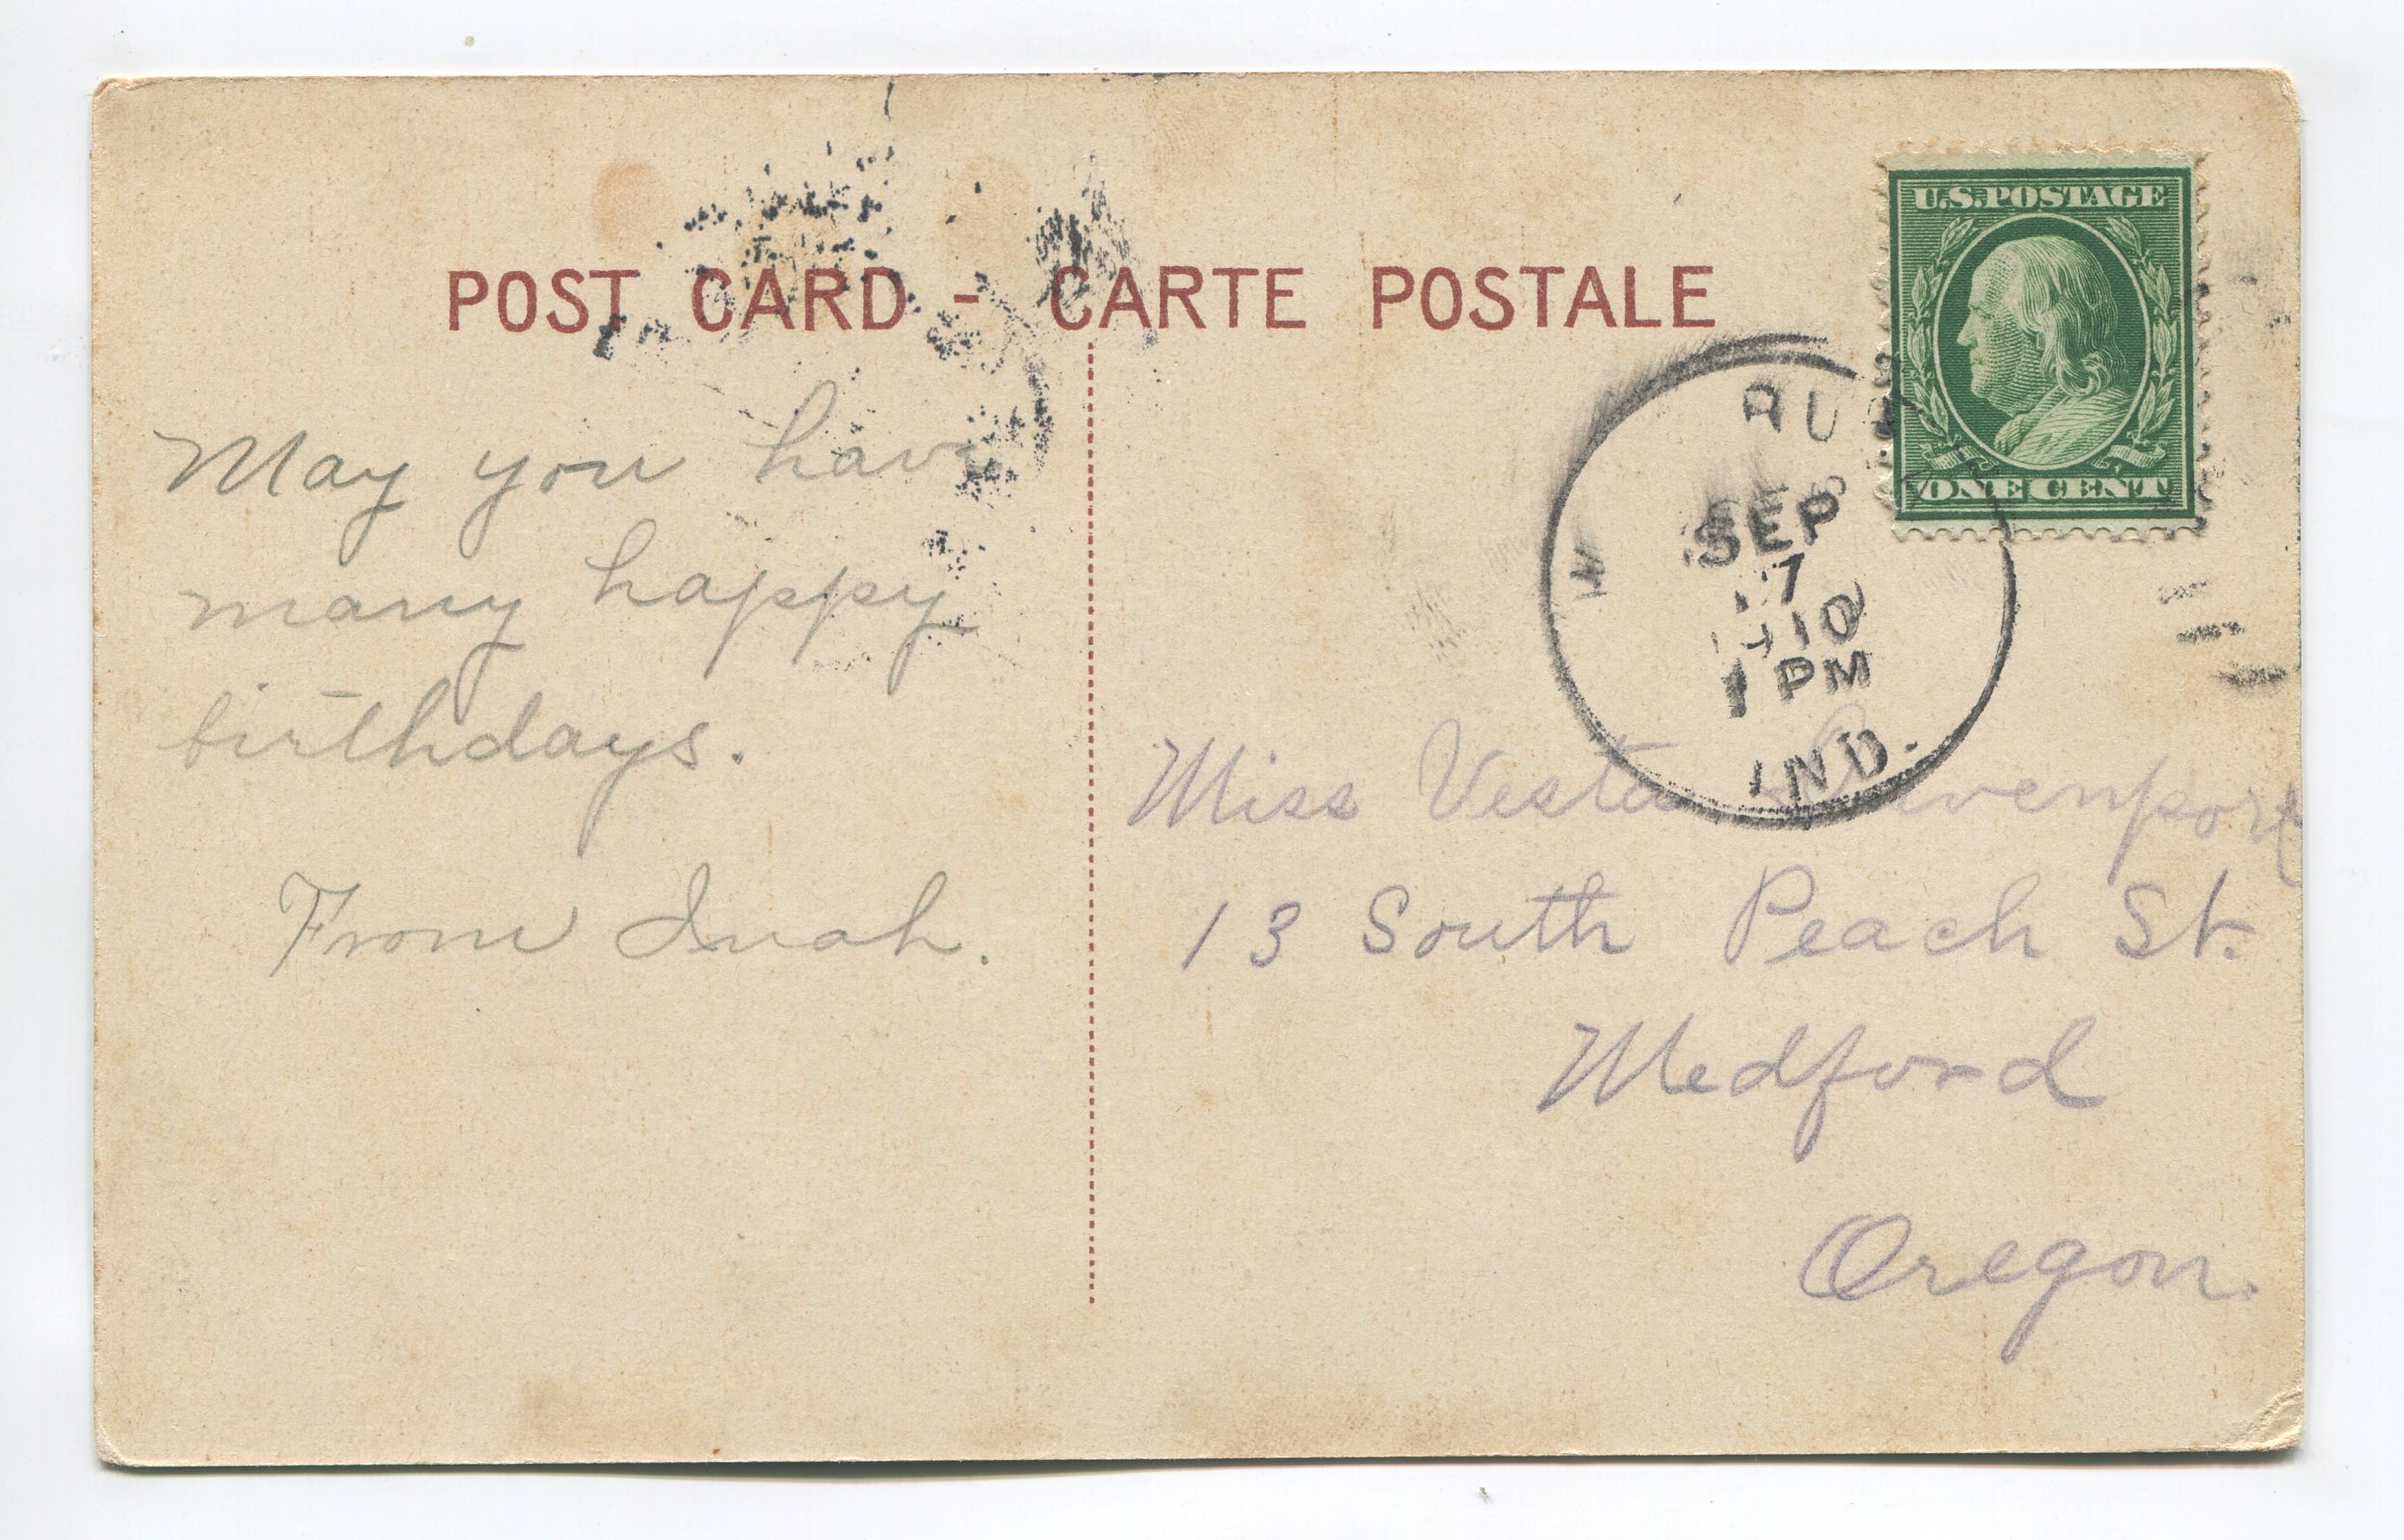 POST CARD - CARTE POSTALE
U.S. POSTAGE
ONE CENT
SEP
1910
1 PM
IND.
May you have
many happy
birthdays.
From Inah.
Miss Vesta Davenport
13 South Peach St.
Medford
Oregon.